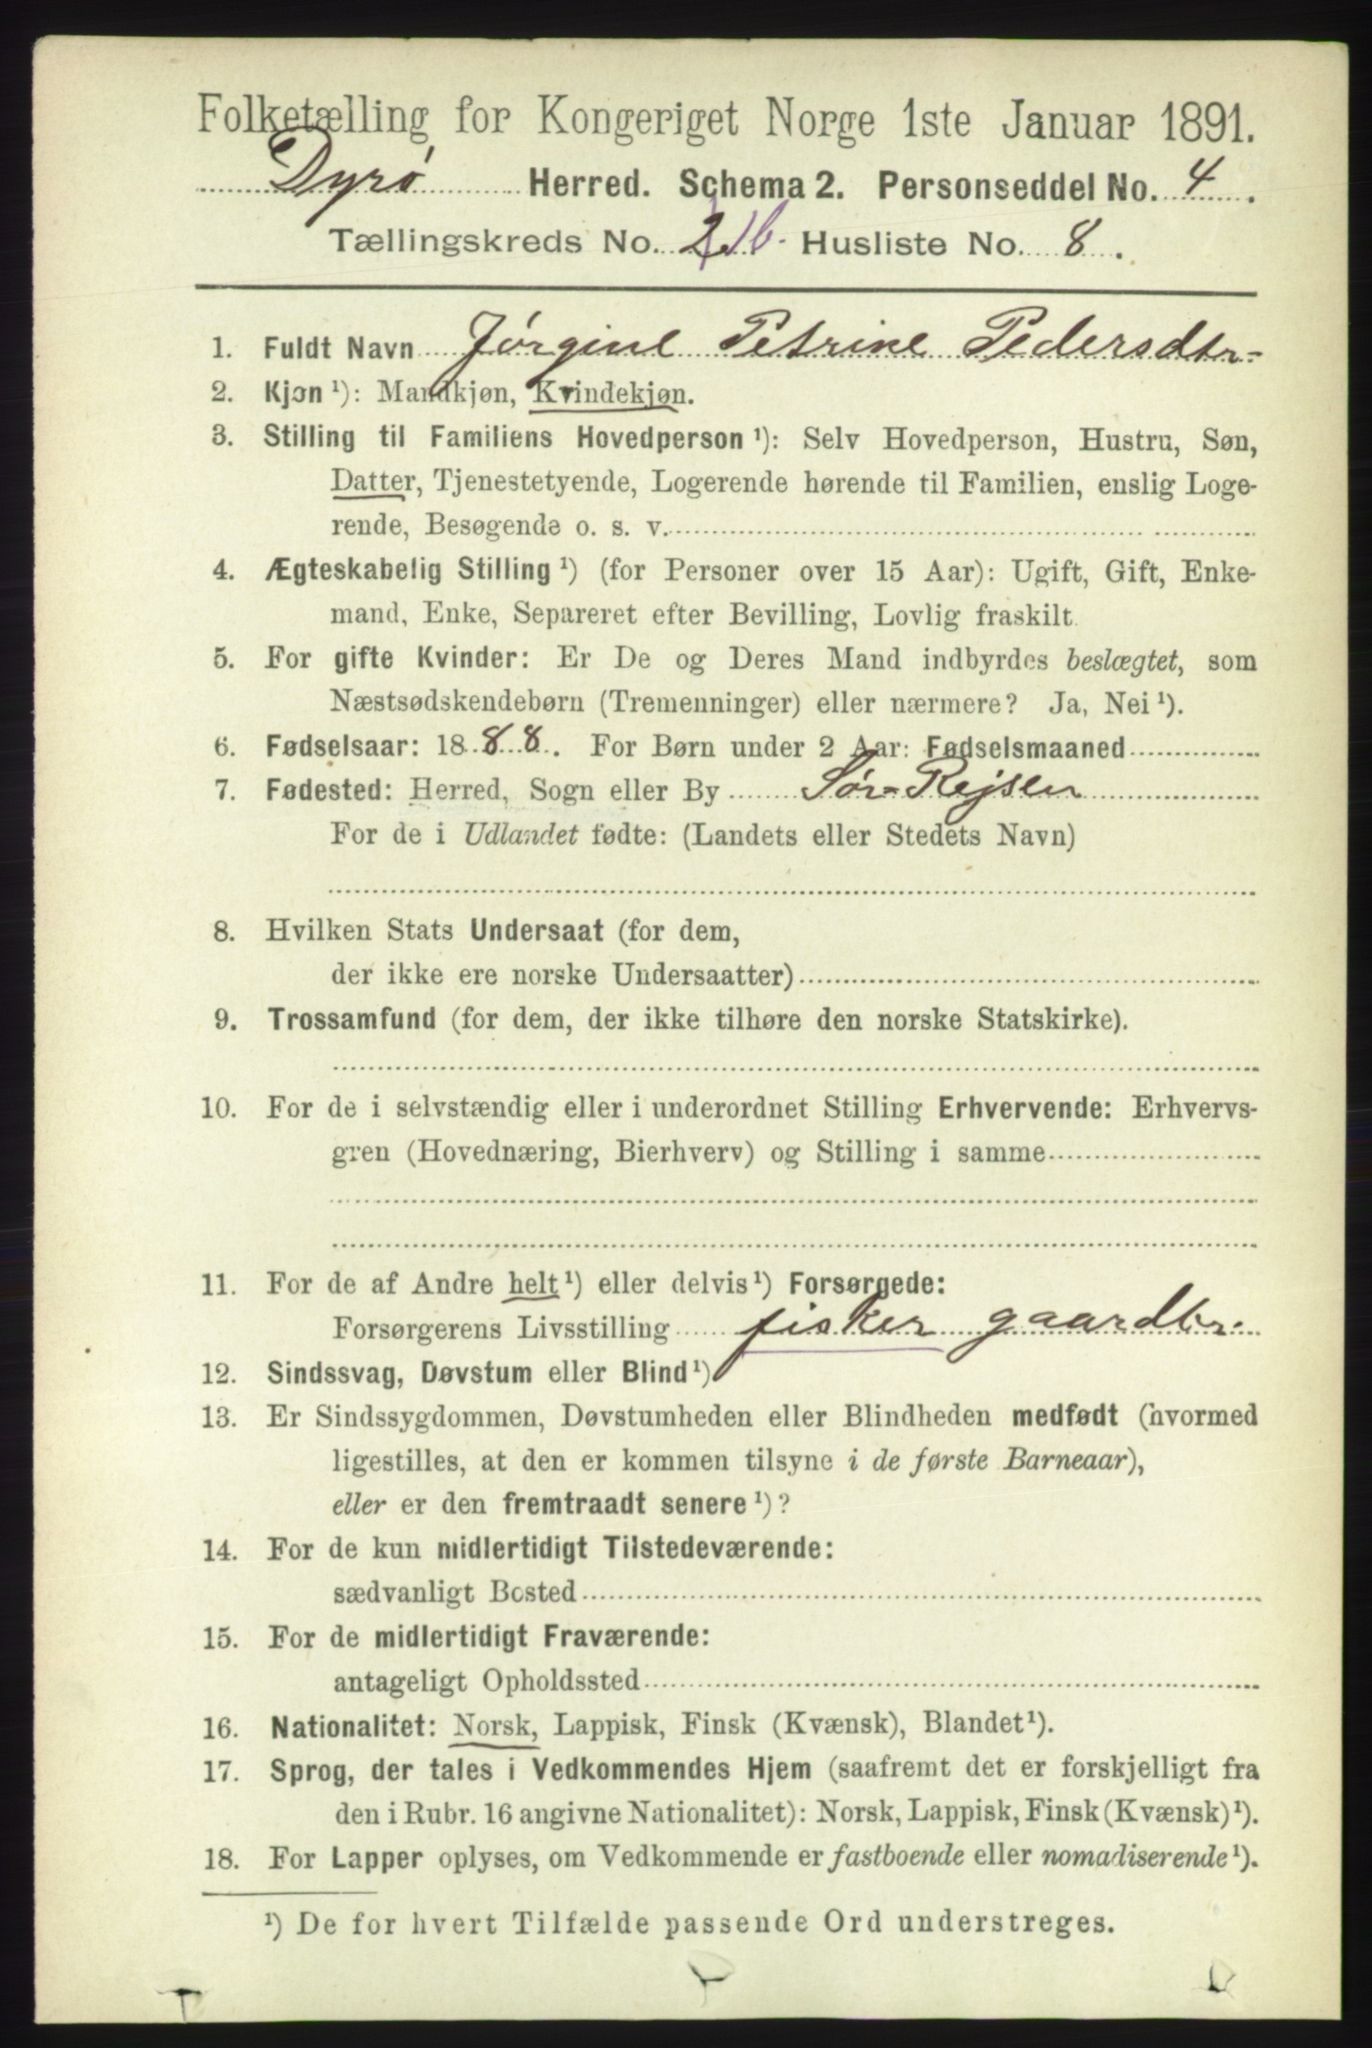 Folketælling for Kongeriget Norge 1ste Januar 1891.
Dyrø Herred. Schema 2. Personseddel No. 4.
Tællingskreds No. 2 1b. Husliste No. 8.
1. Fuldt Navn Jørgine Petrine Pedersdtr-
2. Kjøn ¹): Mandkjøn, Kvindekjøn.
3. Stilling til Familiens Hovedperson ¹): Selv Hovedperson, Hustru, Søn,
Datter, Tjenestetyende, Logerende hørende til Familien, enslig Loge-
rende, Besøgende o. s. v.
4. Ægteskabelig Stilling ¹) (for Personer over 15 Aar): Ugift, Gift, Enke-
mand, Enke, Separeret efter Bevilling, Lovlig fraskilt.
5. For gifte Kvinder: Er De og Deres Mand indbyrdes beslægtet, som
Næstsødskendebørn (Tremenninger) eller nærmere? Ja, Nei ¹).
6. Fødselsaar: 1888. For Børn under 2 Aar: Fødselsmaaned
7. Fødested: Herred, Sogn eller By Sør-Rejsen
For de i Udlandet fødte: (Landets eller Stedets Navn)
8. Hvilken Stats Undersaat (for dem,
der ikke ere norske Undersaatter)
9. Trossamfund (for dem, der ikke tilhøre den norske Statskirke).
10. For de i selvstændig eller i underordnet Stilling Erhvervende: Erhvervs-
gren (Hovednæring, Bierhverv) og Stilling i samme
11. For de af Andre helt ¹) eller delvis ¹) Forsørgede:
Forsørgerens Livsstilling fisker gaardbr.
12. Sindssvag, Døvstum eller Blind ¹)
13. Er Sindssygdommen, Døvstumheden eller Blindheden medfødt (hvormed
ligestilles, at den er kommen tilsyne i de første Barneaar),
eller er den fremtraadt senere ¹)?
14. For de kun midlertidigt Tilstedeværende:
sædvanligt Bosted
15. For de midlertidigt Fraværende:
antageligt Opholdssted
16. Nationalitet: Norsk, Lappisk, Finsk (Kvænsk), Blandet ¹).
17. Sprog, der tales i Vedkommendes Hjem (saafremt det er forskjelligt fra
den i Rubr. 16 angivne Nationalitet): Norsk, Lappisk, Finsk (Kvænsk) ¹).
18. For Lapper oplyses, om Vedkommende er fastboende eller nomadiserende ¹).
¹) De for hvert Tilfælde passende Ord understreges.